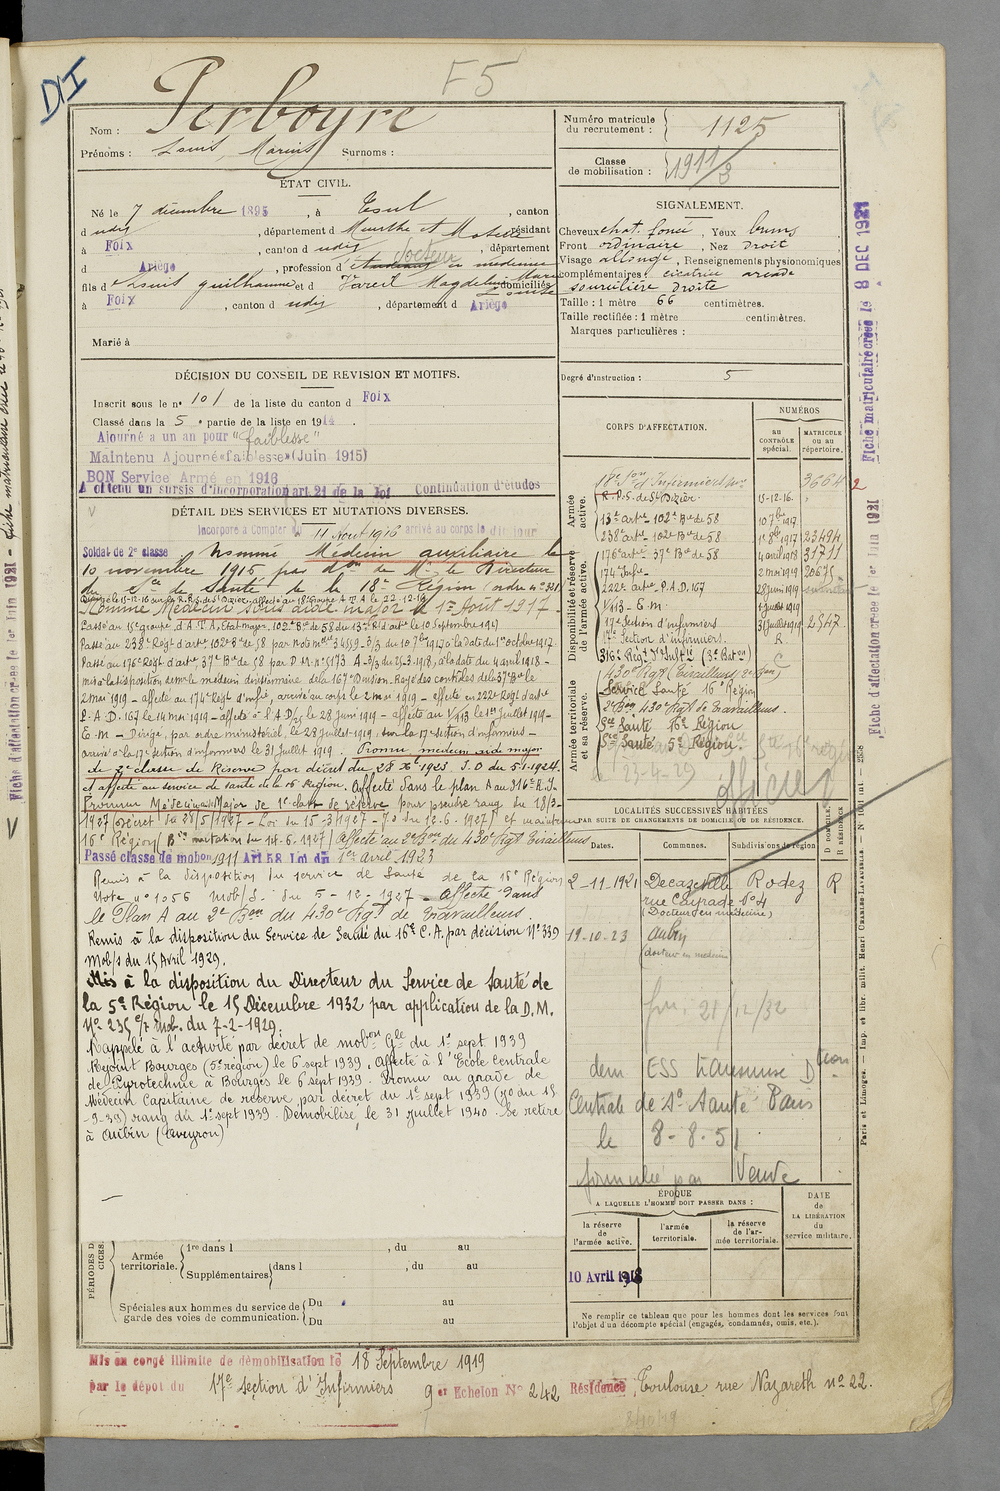 DI
F5
Nom : Perboyre
Prénoms : Louis, Marius Surnoms :
Numéro matricule du recrutement : 1125
Classe de mobilisation : 1911/3
ÉTAT CIVIL.
Né le 7 décembre 1895, à Toul, canton
d udis, département d Meurthe et Moselle résidant
à Foix, canton d udis, département
d Ariège, profession d' étudiant en médecine
docteur
fils d e Louis Guilhaume et d Magdeleine Marie Louise domiciliés
à Foix, canton d udis, département d Ariège
Marié à
SIGNALEMENT.
Cheveux chat. foncé, Yeux bruns
Front ordinaire, Nez droit
Visage allongé, Renseignements physionomiques
complémentaires : cicatrice arcade
sourcilière droite
Taille : 1 mètre 66 centimètres.
Taille rectifiée : 1 mètre centimètres.
Marques particulières :
Degré d'instruction : 5
DÉCISION DU CONSEIL DE REVISION ET MOTIFS.
Inscrit sous le n° 101 de la liste du canton d Foix
Classé dans la 5e partie de la liste en 1914.
Ajourné a un an pour "faiblesse"
Maintenu Ajourné «faiblesse» (Juin 1915)
BON Service Armé en 1916
A obtenu un sursis d'incorporation art. 21 de la loi Continuation d'études
DÉTAIL DES SERVICES ET MUTATIONS DIVERSES.
Incorporé à Compter du 11 Aout 1916 arrivé au corps le dit jour
Soldat de 2e classe Nommé Médecin auxiliaire le
10 novembre 1916 par don de Mr le Directeur
du Sce de Santé de la 18e Région ordre n° 331
Nommé Médecin sous aide major le 1er Août 1917
Passé au 13e groupe d'A.T.A. Etat major, 102e Bie de 58 du 13e Rt d'artie le 10 septembre 1917
Passé au 238e Régt d'artie 102e Bie de 58 par Note mle 34559-3/3 du 10 7bre 1917 à la date du 1er octobre 1917
Passé au 176e Régt d'artie, 37e Bie de 58 par D.M. n° 5173 A-3/3 du 25-3-1918, à la date du 4 avril 1918 -
mis à la disposition de Mr le médecin divisionnaire de la 167e Division. Rayé des contrôles de la 37e Bie le
2 mai 1919 - affecté au 174e Régt d'infie, arrivé au corps le 2 mai 1919 - affecté au 222e Régt d'artie
P.A.D. 167 le 14 mai 1919 - affecté à P.A.D/25 le 28 juin 1919 - affecté au 1/413 le 1er juillet 1919 -
E.M - Dirigé, par ordre ministériel, le 28 juillet 1919, sur la 17e section d'infirmiers -
arrivé à la 17e section d'infirmiers le 31 juillet 1919. Promu médecin aide major
de 2e classe de Réserve par décret du 28 Xbre 1923 J.O du 5-1-1924.
et affecté au service de santé de la 16e Région. Affecté dans le plan A au 316e R.I.
Promu Médecin Aide Major de 1e classe de réserve pour prendre rang du 18/3-
1927 (décret du 28/5/1927 - Loi du 15-3/1927 - J.O du 12-6-1927) et maintenu
16e Région / Bon mutation du 14-6-1927 / Affecté au 2e Bon du 430e Rgt Tirailleurs
Passé classe de mobon 1911 Art 58 Loi du 1er Avril 1923
Remis à la disposition du service de Santé de la 16e Région
Note n° 1056 Mob/S. du 5-12-1927 - Affecté dans
le Plan A au 2e Bon du 430e Rgt de Travailleurs.
Remis à la disposition du Service de Santé du 16e C.A. par décision N° 339
Mob/s du 15 Avril 1929.
Mis à la disposition du Directeur du Service de Santé de
la 5e Région le 15 Décembre 1932 par application de la D.M.
N° 235 c/7 Mob. du 7-2-1929.
Rappelé à l'activité par décret de mobon Gle du 1er sept 1939
Rejoint Bourges (5e région) le 6 sept 1939. Affecté à l'Ecole centrale
de Pyrotechnie à Bourges le 6 sept 1939. Promu au grade de
Médecin Capitaine de réserve par décret du 1er sept 1939 (JO du 15
-9-39) rang du 1er sept 1939. Démobilisé le 31 juillet 1940. Se retire
à Aubin (Aveyron)
CORPS D'AFFECTATION.
NUMÉROS
au CONTRÔLE spécial.
MATRICULE ou au répertoire.
Armée active.
Disponibilité et réserve de l'armée active.
Armée territoriale et sa réserve.
18e Son d'Infirmiers Mres 3664 2
R.P.S. de St Dizier 15-12-16.
13e artie - 102e Bie de 58 10 7bre 1917
238e artie - 102e Bie de 58 1er 8bre 1917 23494
176e artie 37e Bie de 58 4 avril 1918 31711
174 Infie - 2 mai 1919 20675
222e artie P.A.D. 167 28 juin 1919
1/413 - E.M. 1er juillet 1919
17e Section d'infirmiers 31 juillet 1919 2547
17e Section d'infirmiers. R.
316e Régt d'Infie (3e Baton) C
430e Rgt (Tirailleurs 2e Bon)
Service Santé 16e Région
2e Bon 430e Rgt de Travailleurs.
Sce Santé 16e Région
Sce Santé 5e Région.
23-4-29
officier
LOCALITÉS SUCCESSIVES HABITÉES
PAR SUITE DE CHANGEMENTS DE DOMICILE OU DE RÉSIDENCE.
Dates. Communes. Subdivisions de région
D DOMICILE. R RÉSIDENCE
2-11-1921 Decazeville Rodez R
rue Cayrade N° 4
(Docteur en médecine)
19-10-23 Aubin
(docteur en médecine)
21/12/32
dem ESS
Centrale de Sé Santé Paris
le 8-8-51
formulée par Veuve
ÉPOQUE
A LAQUELLE L'HOMME DOIT PASSER DANS :
la réserve de l'armée active.
l'armée territoriale.
la réserve de l'armée territoriale.
DATE de LA LIBÉRATION du service militaire.
10 Avril 1918
Ne remplir ce tableau que pour les hommes dont les services font
l'objet d'un décompte spécial (engagés, condamnés, omis, etc.).
PÉRIODES D
CICES.
Armée territoriale. 1re dans l , du au
Supplémentaires dans l , du au
Spéciales aux hommes du service de garde des voies de communication. Du au
Du au
Mis en congé illimité de démobilisation le 18 Septembre 1919
par le dépôt du 17e section d'Infirmiers 9er Echelon N° 242 Résidence Toulouse rue Nazareth n° 22.
Fiche matriculaire créée le 8 DEC 1921
Fiche d'affectation créée le 1er Juin 1921
Fiche d'affectation créée le 1er Juin 1921
Paris et Limoges. — Imp. et libr. milit. Henri CHARLES-LAVAUZELLE.